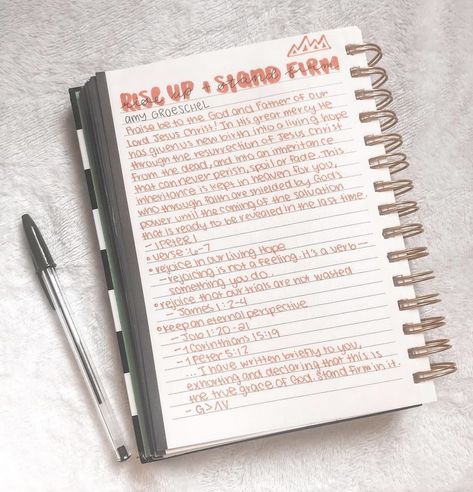 RISE UP + STAND FIRM
rise up + stand firm
amy GROESCHEL
Praise be to the God and Father of our
Lord Jesus Christ! In his great mercy He
has given us new birth into a living hope
through the resurrection of Jesus Christ
from the dead, and into an inheritance
that can never perish, spoil or fade. This
inheritance is kept in heaven for you,
who through faith are shielded by God's
power until the coming of the salvation
that is ready to be revealed in the last time.
- 1 Peter 1
• verse: 6-7
• rejoice in our living hope
- rejoicing is not a feeling. it's a verb -
something you do.
• rejoice that our trials are not wasted
- James 1:2-4
• keep an eternal perspective
- Job 1:20-21
- 1 Corinthians 15:19
- 1 Peter 5:12
... I have written briefly to you,
exhorting and declaring that this is
the true grace of God. Stand firm in it.
- G>ΛV